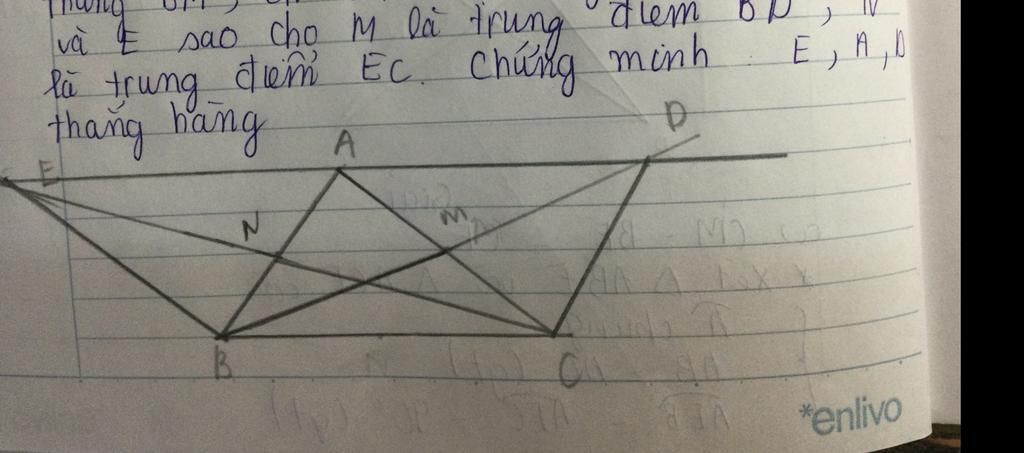 và E sao cho M là trung điểm BD, N
là trung điểm EC. Chứng minh : E, A, D
thẳng hàng
E
A
D
N
M
B
C
*enlivo